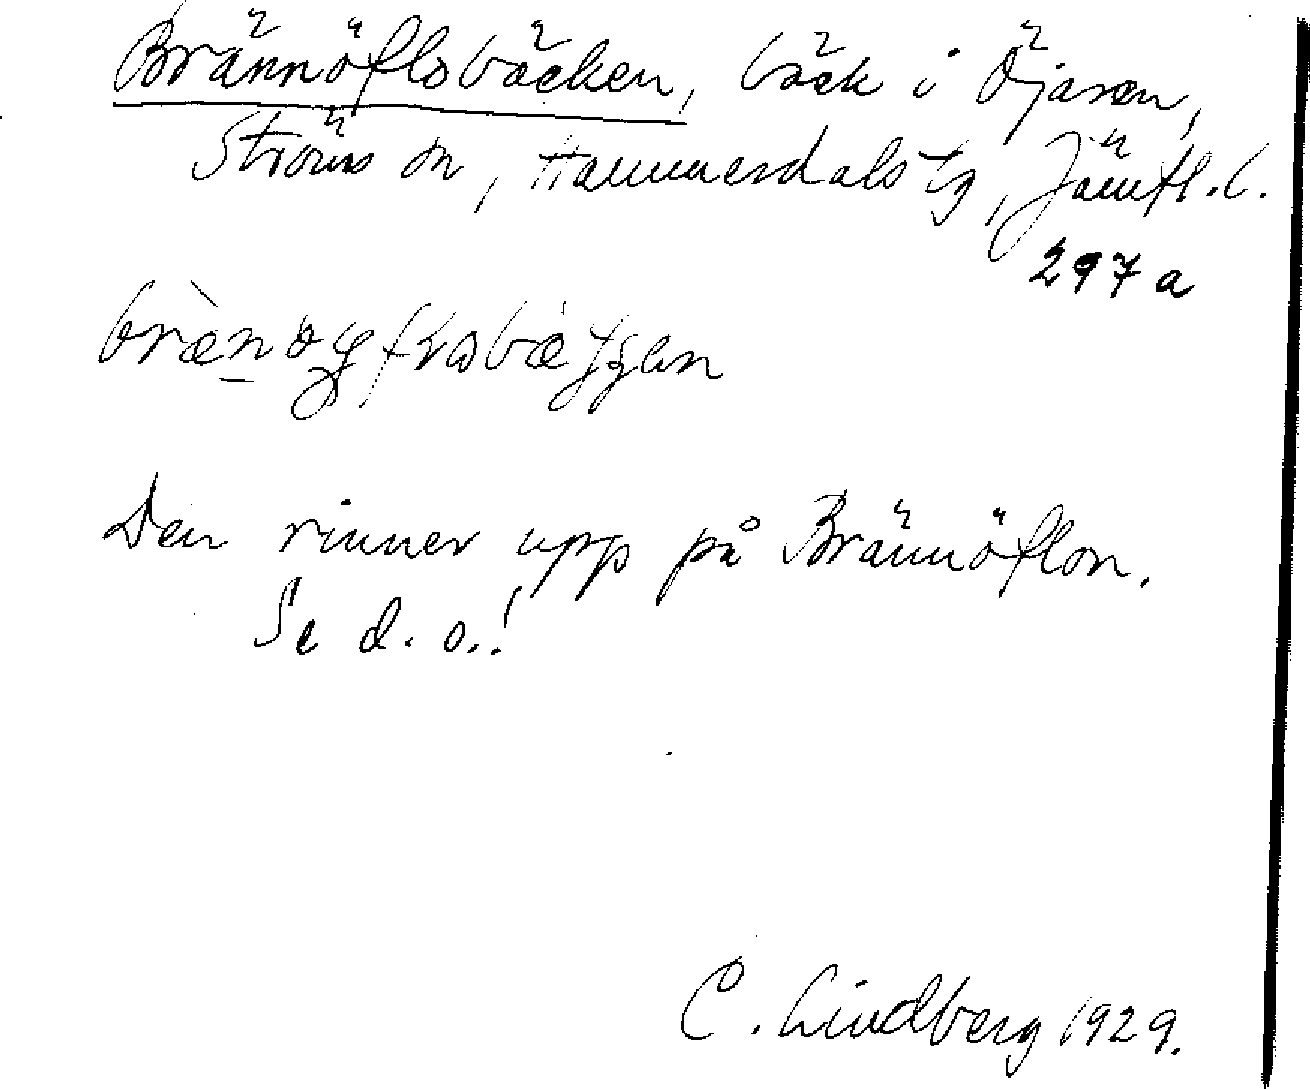 Brännöflobäcken, bäck i Öjaren,
Ströms sn, Hammerdals tg, Jämtl. l.
297 a
Den rinner upp på Brännöflon.
Se d. o.!
C. Lindberg 1929.